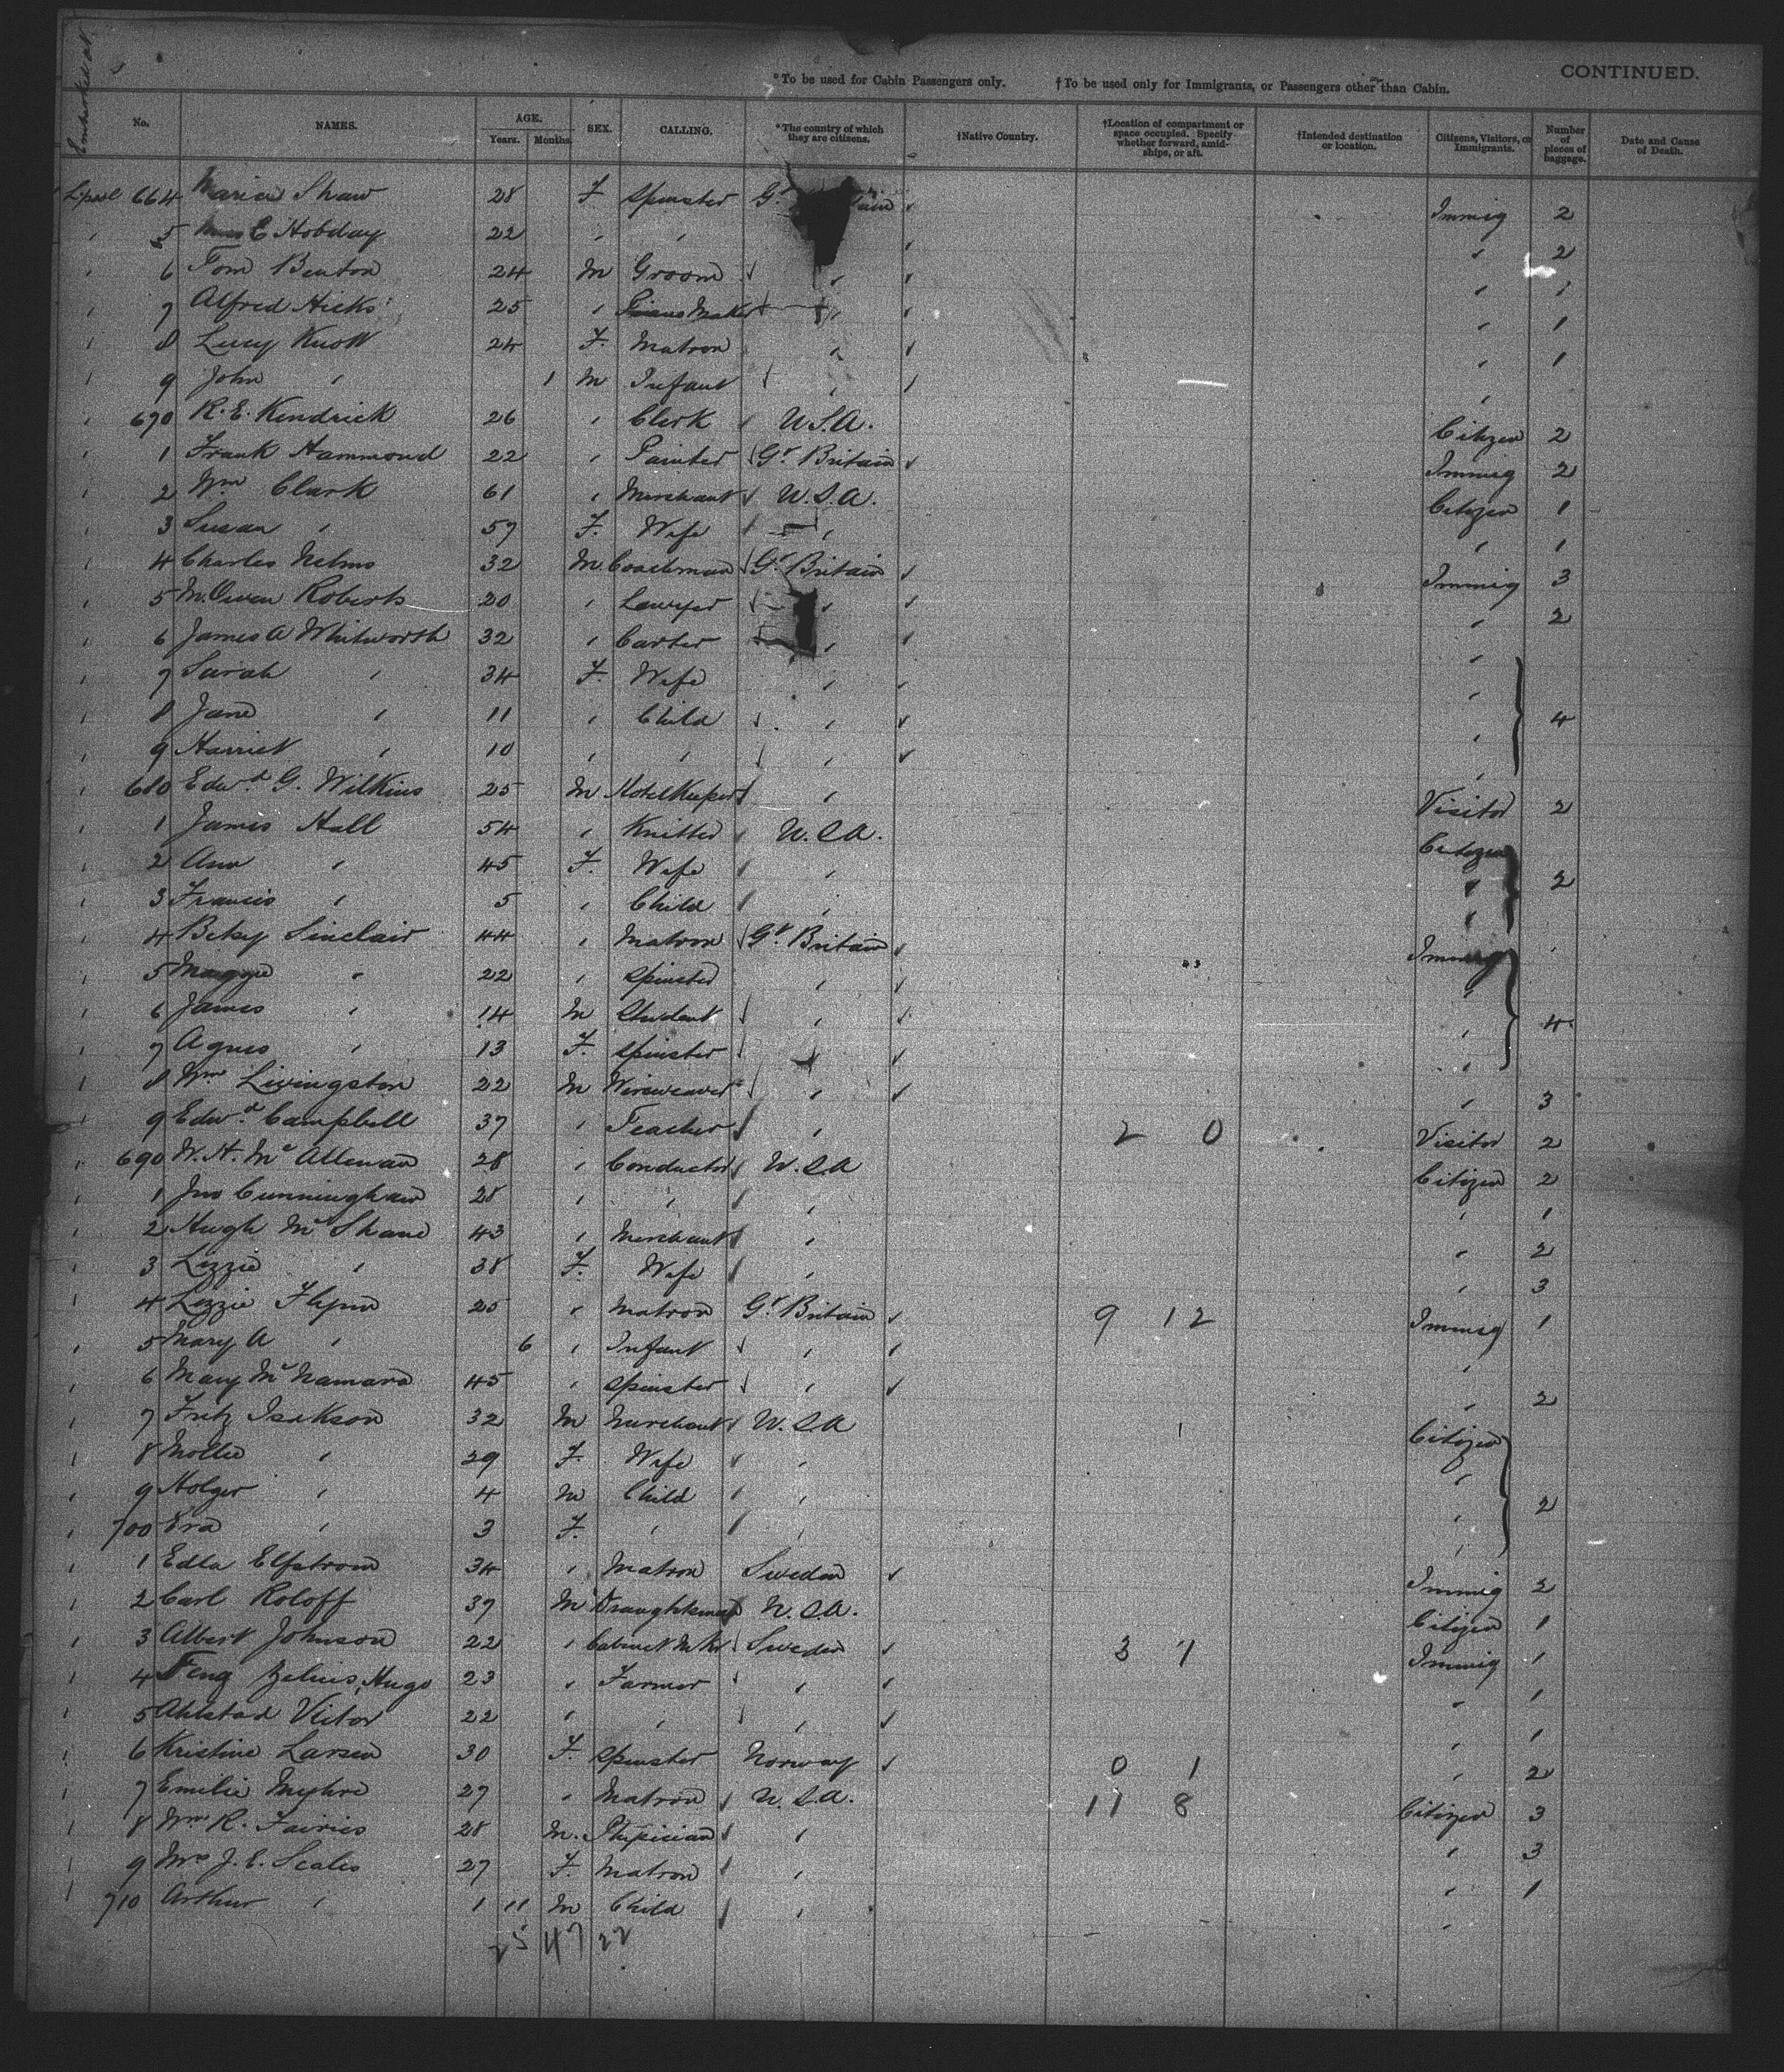 CONTINUED.
*To be used for Cabin Passengers only. †To be used only for Immigrants, or Passengers other than Cabin.
Embarked at No. NAMES. AGE. Years. Months. SEX. CALLING. *The country of which they are citizens. †Native Country. †Location of compartment or space occupied. Specify whether forward, amidships, or aft. †Intended destination or location. Citizens, Visitors, or Immigrants. Number of pieces of baggage. Date and Cause of Death.
L'pool 664 Maria Shaw 28 F Spinster Gt Immig 2
" 5 E Hobday 22 " " " " 2
" 6 Tom Benton 24 M Groom " " 1
" 7 Alfred Hicks 25 " Piano Maker " " 1
" 8 Lucy Knott 24 F. Matron " " 1
" 9 John " 1 M Infant " "
" 670 R. E. Kendrick 26 " Clerk U.S.A. Citizen 2
" 1 Frank Hammond 22 " Painter Gt Britain Immig 2
" 2 Wm Clark 61 " Merchant U.S.A. Citizen 1
" 3 Susan " 57 F. Wife " " 1
" 4 Charles Nelms 32 M Coachman Gt Britain Immig 3
" 5 M. Owen Roberts 20 " Lawyer " " 2
" 6 James A Whitworth 32 " Carter " "
" 7 Sarah " 34 F. Wife " "
" 8 Jane " 11 " Child " " 4
" 9 Harriet " 10 " " " "
" 680 Edwd G. Wilkins 25 M Hotelkeeper " Visitor 2
" 1 James Hall 54 " Knitter U.S.A. Citizen
" 2 Ann " 45 F. Wife " " 2
" 3 Francis " 5 " Child " "
" 4 Betsy Sinclair 44 " Matron Gt Britain Immig
" 5 Maggie " 22 " Spinster " "
" 6 James " 14 M Student " " 4
" 7 Agnes " 13 F. Spinster " "
" 8 Wm Livingston 22 M Wireweaver " " 3
" 9 Edwd Campbell 37 " Teacher " 2 0 Visitor 2
" 690 W. H. Mc Alleman 28 " Conductor U.S.A Citizen 2
" 1 Jno Cunningham 28 " " " " 1
" 2 Hugh Mc Shane 43 " Merchant " " 2
" 3 Lizzie " 38 F. Wife " " 3
" 4 Lizzie Flynn 25 " Matron Gt Britain 9 12 Immig 1
" 5 Mary A " 6 " Infant " "
" 6 Mary Mc Namara 45 " Spinster " " 2
" 7 Fritz Isakson 32 M Merchant U.S.A 1 Citizen
" 8 Mollie " 29 F. Wife " "
" 9 Holger " 4 M Child " " 2
" 700 " 3 F. " " "
" 1 Edla Elfstrom 34 " Matron Sweden Immig 2
" 2 Carl Roloff 37 M Draughtsman U.S.A. Citizen 1
" 3 Albert Johnson 22 " Cabinet Mkr Sweden 3 1 Immig 1
" 4 Hugo 23 " Farmer " " 1
" 5 Ahlstad Victor 22 " " " " 1
" 6 Kristine Larsen 30 F. Spinster Norway 0 1 " 2
" 7 Emilie Myhre 27 " Matron U.S.A. 11 8 Citizen 3
" 8 Wm R. Fairies 28 M. Physician " " 3
" 9 Mrs J. E. Scales 27 F. Matron " " 1
" 710 Arthur " 1 11 M Child " "
25 47 22